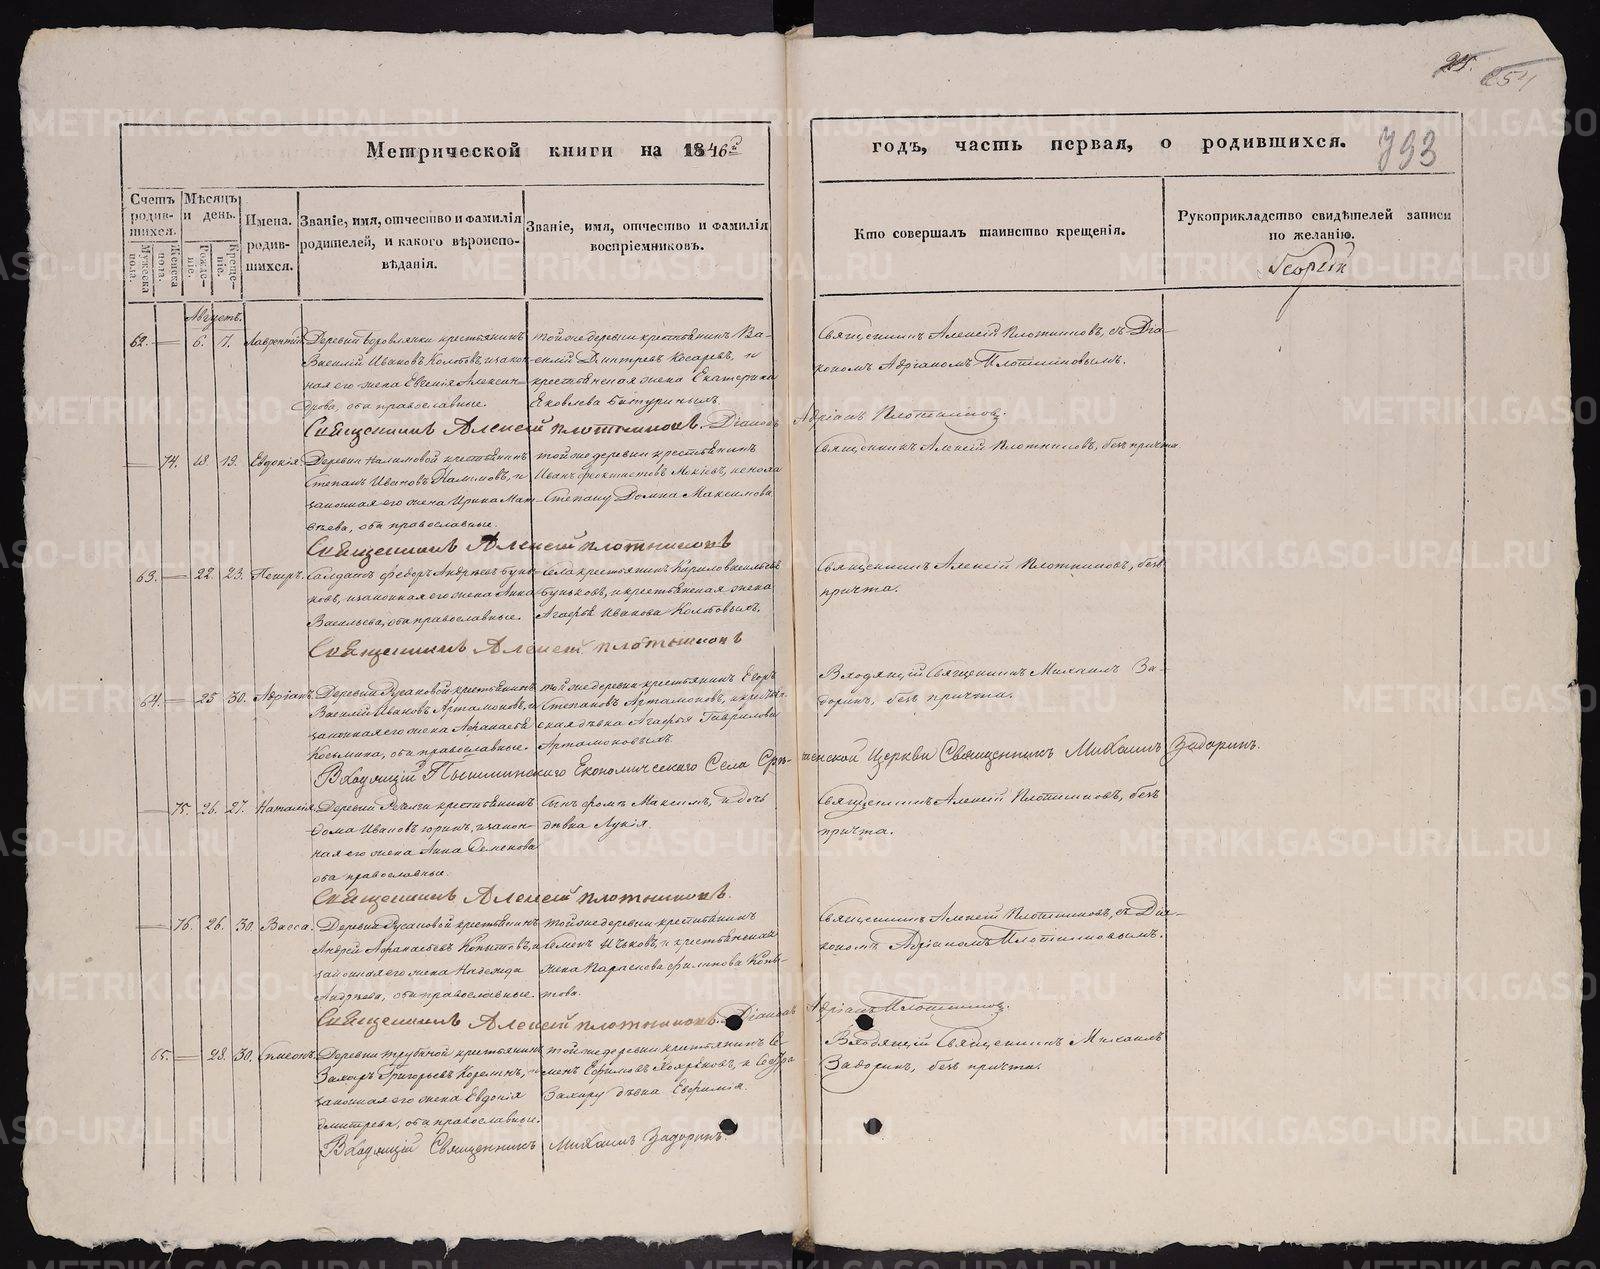 25.
254
Метрической книги на 1846й
годъ, часть первая, о родившихся.
793
Счетъ родив-шихся.
Мужеска пола.
Женска пола.
Мѣсяцъ и день.
Рожде-ніе.
Креще-ніе.
Имена. родив-шихся.
Званіе, имя, отчество и фамилія родителей, и какого вѣроиспо-вѣданія.
Званіе, имя, отчество и фамилія воспріемниковъ.
Кто совершалъ таинство крещенія.
Рукоприкладство свидѣтелей записи по желанію.
Георгій
Августъ.
62. 6. 7. Лаврентій
Деревни Боровлянки крестьянинъ
Василій Ивановъ Колтовъ, и закон-
ная его жена Евгенія Алексан-
дрова, оба православные.
тойже деревни крестьянинъ Ва-
силій Дмитревъ Косаревъ, и
крестьянская жена Екатерина
Яковлева Батуриныхъ.
Священникъ Алексій Плотниковъ, съ Діа-
кономъ Адріаномъ Плотниковымъ.
Священникъ Алексій Плотниковъ. Діаконъ Адріанъ Плотниковъ.
74. 18. 19. Евдокія
Деревни Налимовой крестьянинъ
Степанъ Ивановъ Налимовъ, и
законная его жена Ирина Мат-
вѣева, оба православные.
тойже деревни крестьянинъ
Иванъ Феоктистовъ
Степану Домна Максимова
Священникъ Алексій Плотниковъ, безъ причта
Священникъ Алексій Плотниковъ
63. 22. 23. Петръ.
Солдатъ Федоръ Андреевъ Бунь-
ковъ, и законная его жена Анна
Васильева, оба православные.
Села крестьянинъ Кирилъ Васильевъ
Буньковъ, и крестьянская жена
Агафья Иванова Колтовыхъ.
Священникъ Алексій Плотниковъ, безъ
причта.
Священникъ Алексій Плотниковъ
64. 25 30. Адріанъ
Деревни Русаковой крестьянинъ
Василій Ивановъ Артамоновъ, и
законная его жена Афанасья
Козьмина, оба православные.
той же деревни крестьянинъ Егоръ
Степановъ Артамоновъ, и крестьян-
ская дѣвка Агафья Гаврилова
Артамоновыхъ.
Входящій Священникъ Михаилъ За-
доринъ, безъ причта.
Входящій Пышминскаго Економическаго Села Срѣтенской Церкви Священникъ Михаилъ Задоринъ.
75. 26. 27. Наталія
Деревни Речелги крестьянинъ
Фома Ивановъ Горинъ, и закон-
ная его жена Анна Семенова
оба православные.
Сынъ Фомы Максимъ, и дочь
дѣвка Лукія.
Священникъ Алексій Плотниковъ, безъ
причта.
Священникъ Алексій Плотниковъ.
76. 26. 30. Васса.
Деревни Русаковой крестьянинъ
Андрей Афанасьевъ Копытовъ, и
законная его жена Надежда
Андреева, оба православные.
тойже деревни крестьянинъ
Семенъ и крестьянская
жена Парасковья Филипова Копы-
това.
Священникъ Алексій Плотниковъ, съ Діа-
кономъ Адріаномъ Плотниковымъ.
Священникъ Алексій Плотниковъ. Діаконъ Адріанъ Плотниковъ.
65. 28. 30. Симеонъ.
Деревни Трубиной крестьянинъ
Захаръ Григорьевъ Корелинъ, и
законная его жена Евдокія
Дмитрева, оба православные.
тойже деревни крестьянинъ Се-
менъ Ефимовъ Поярковъ, и Сестра
Захару дѣвка Евфимія.
Входящій Священникъ Михаилъ
Задоринъ, безъ причта.
Входящій Священникъ Михаилъ Задоринъ.